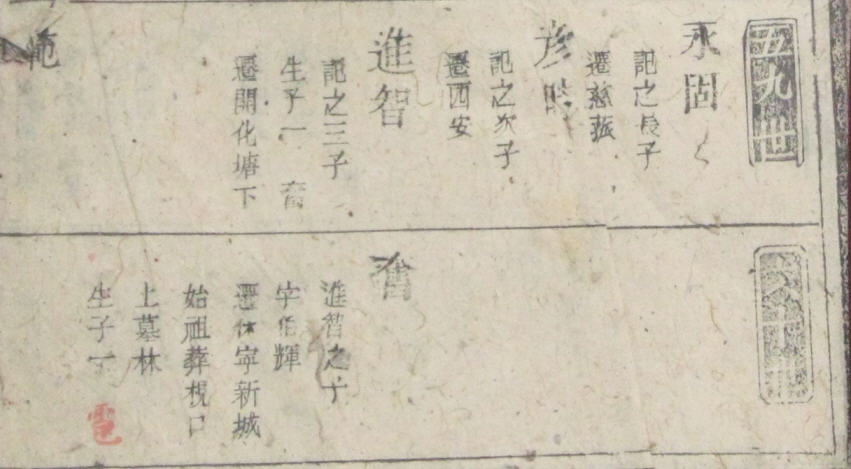 五九世
永固
記之長子
遷慈
彦
記之次子
遷西安
進智
記之三子
生子一 奮
遷開化塘下
範
六十世
奮
進智之子
字伯輝
遷休寧新城
始祖葬梘口
上墓林
生子一